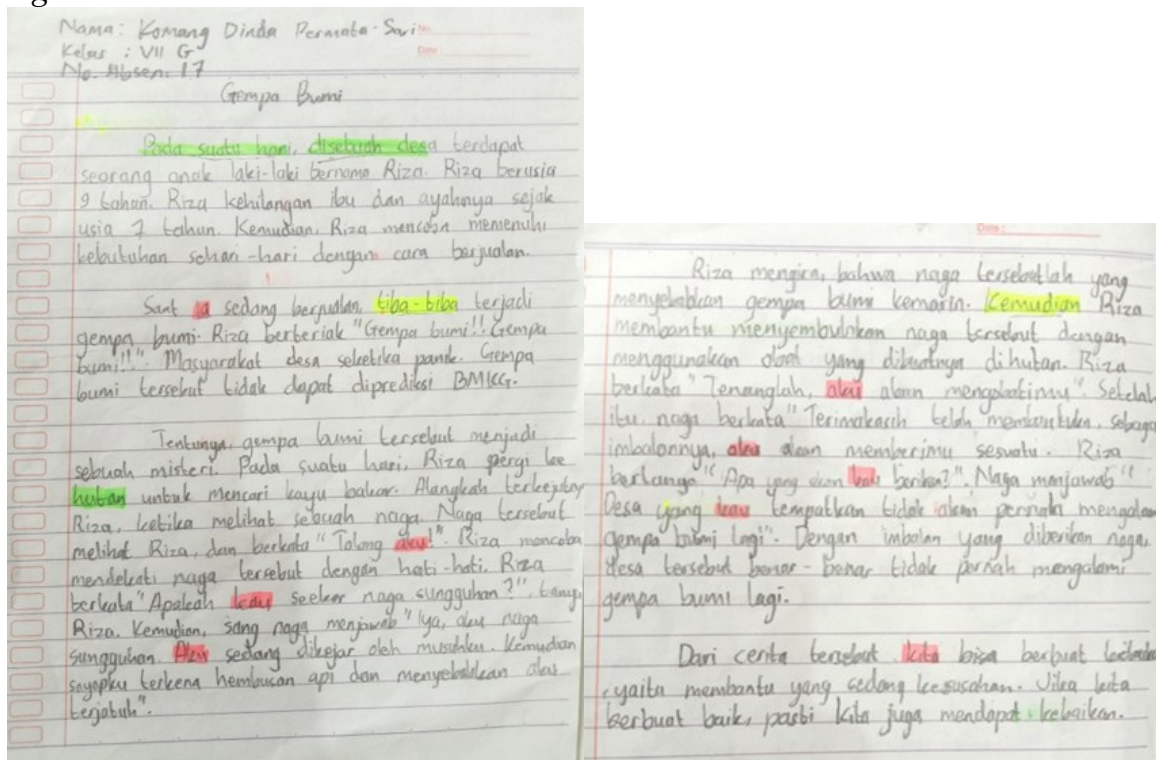 Nama : Komang Dinda Permata Sari
Kelas : VII G
No. Absen. 17
Gempa Bumi
Pada suatu hari, disebuah desa terdapat
seorang anak laki-laki bernama Riza. Riza berusia
9 tahun. Riza kehilangan ibu dan ayahnya sejak
usia 7 tahun. Kemudian, Riza mencoba memenuhi
kebutuhan sehari-hari dengan cara berjualan.
Saat ia sedang berjualan, tiba-tiba terjadi
gempa bumi. Riza berteriak "Gempa bumi!! Gempa
bumi!!!". Masyarakat desa seketika panik. Gempa
bumi tersebut tidak dapat diprediksi BMKG.
Tentunya, gempa bumi tersebut menjadi
sebuah misteri. Pada suatu hari, Riza pergi ke
hutan untuk mencari kayu bakar. Alangkah terkejutnya
Riza, ketika melihat sebuah naga. Naga tersebut
melihat Riza, dan berkata "Tolong aku!". Riza mencoba
mendekati naga tersebut dengan hati-hati. Riza
berkata "Apakah kau seekor naga sungguhan?", tanya
Riza. Kemudian, sang naga menjawab "Iya, aku naga
sungguhan. Aku sedang dikejar oleh musuhku. Kemudian
sayapku terkena hembusan api dan menyebabkan aku
terjatuh".
Date :
Riza mengira, bahwa naga tersebutlah yang
menyebabkan gempa bumi kemarin. Kemudian Riza
membantu menyembuhkan naga tersebut dengan
menggunakan obat yang dibuatnya dihutan. Riza
berkata "Tenanglah, aku akan mengobatimu". Setelah
itu, naga berkata "Terimakasih telah membantuku, sebagai
imbalannya, aku akan memberimu sesuatu. Riza
bertanya "Apa yang akan kau berikan?". Naga menjawab "
Desa yang kau tempatkan tidak akan pernah mengalami
gempa bumi lagi". Dengan imbalan yang diberikan naga,
desa tersebut benar-benar tidak pernah mengalami
gempa bumi lagi.
Dari cerita tersebut kita bisa berbuat
, yaitu membantu yang sedang kesusahan. Jika kita
berbuat baik, pasti kita juga mendapat kebaikan.